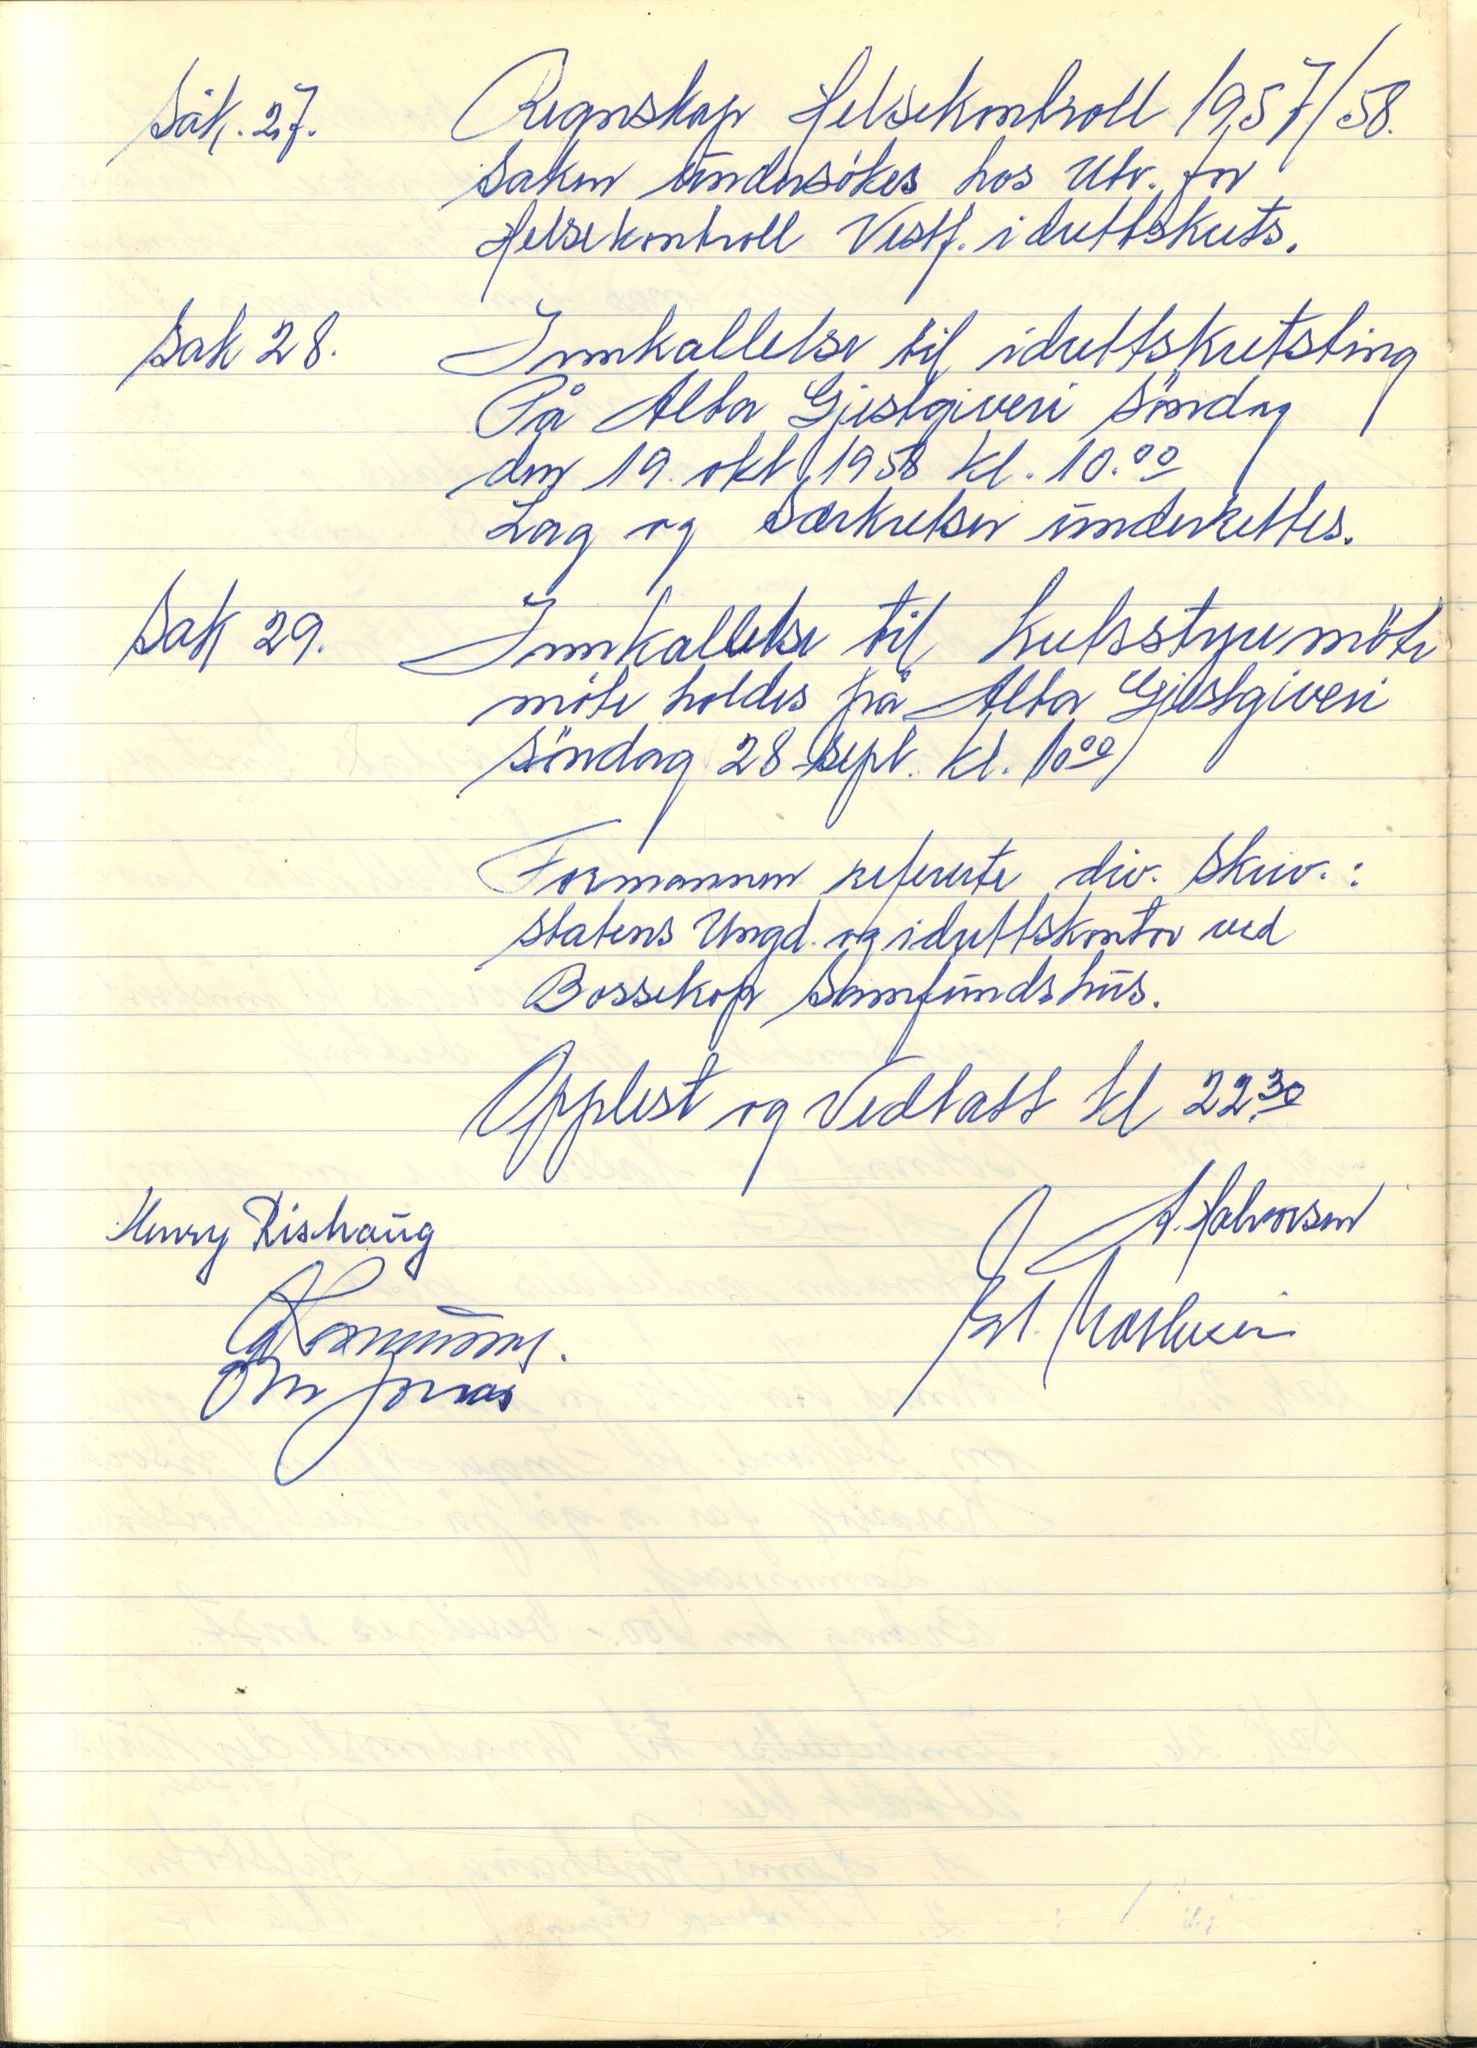 Sak. 27. Regnskap Helsekontroll 1957/58.
Saken undersökes hos Utv. for
Helsekontroll Vestf. idrettskrets.
Sak 28. Innkallelse til idrettskretsting
På Alta Gjestgiveri Söndag
den 19. okt 1958 kl. 10.00
Lag og Særkretser underrettes.
Sak 29. Innkallelse til kretsstyremöte
möte holdes på Alta Gjestgiveri
Söndag 28 sept. kl. 10.00
Formannen refererte div. skriv.:
Statens Ungd. og idrettskontor ved
Bossekop Samfundshus.
Opplest og Vedtatt kl 22.30
Henry Rishaug A. Halvorsen